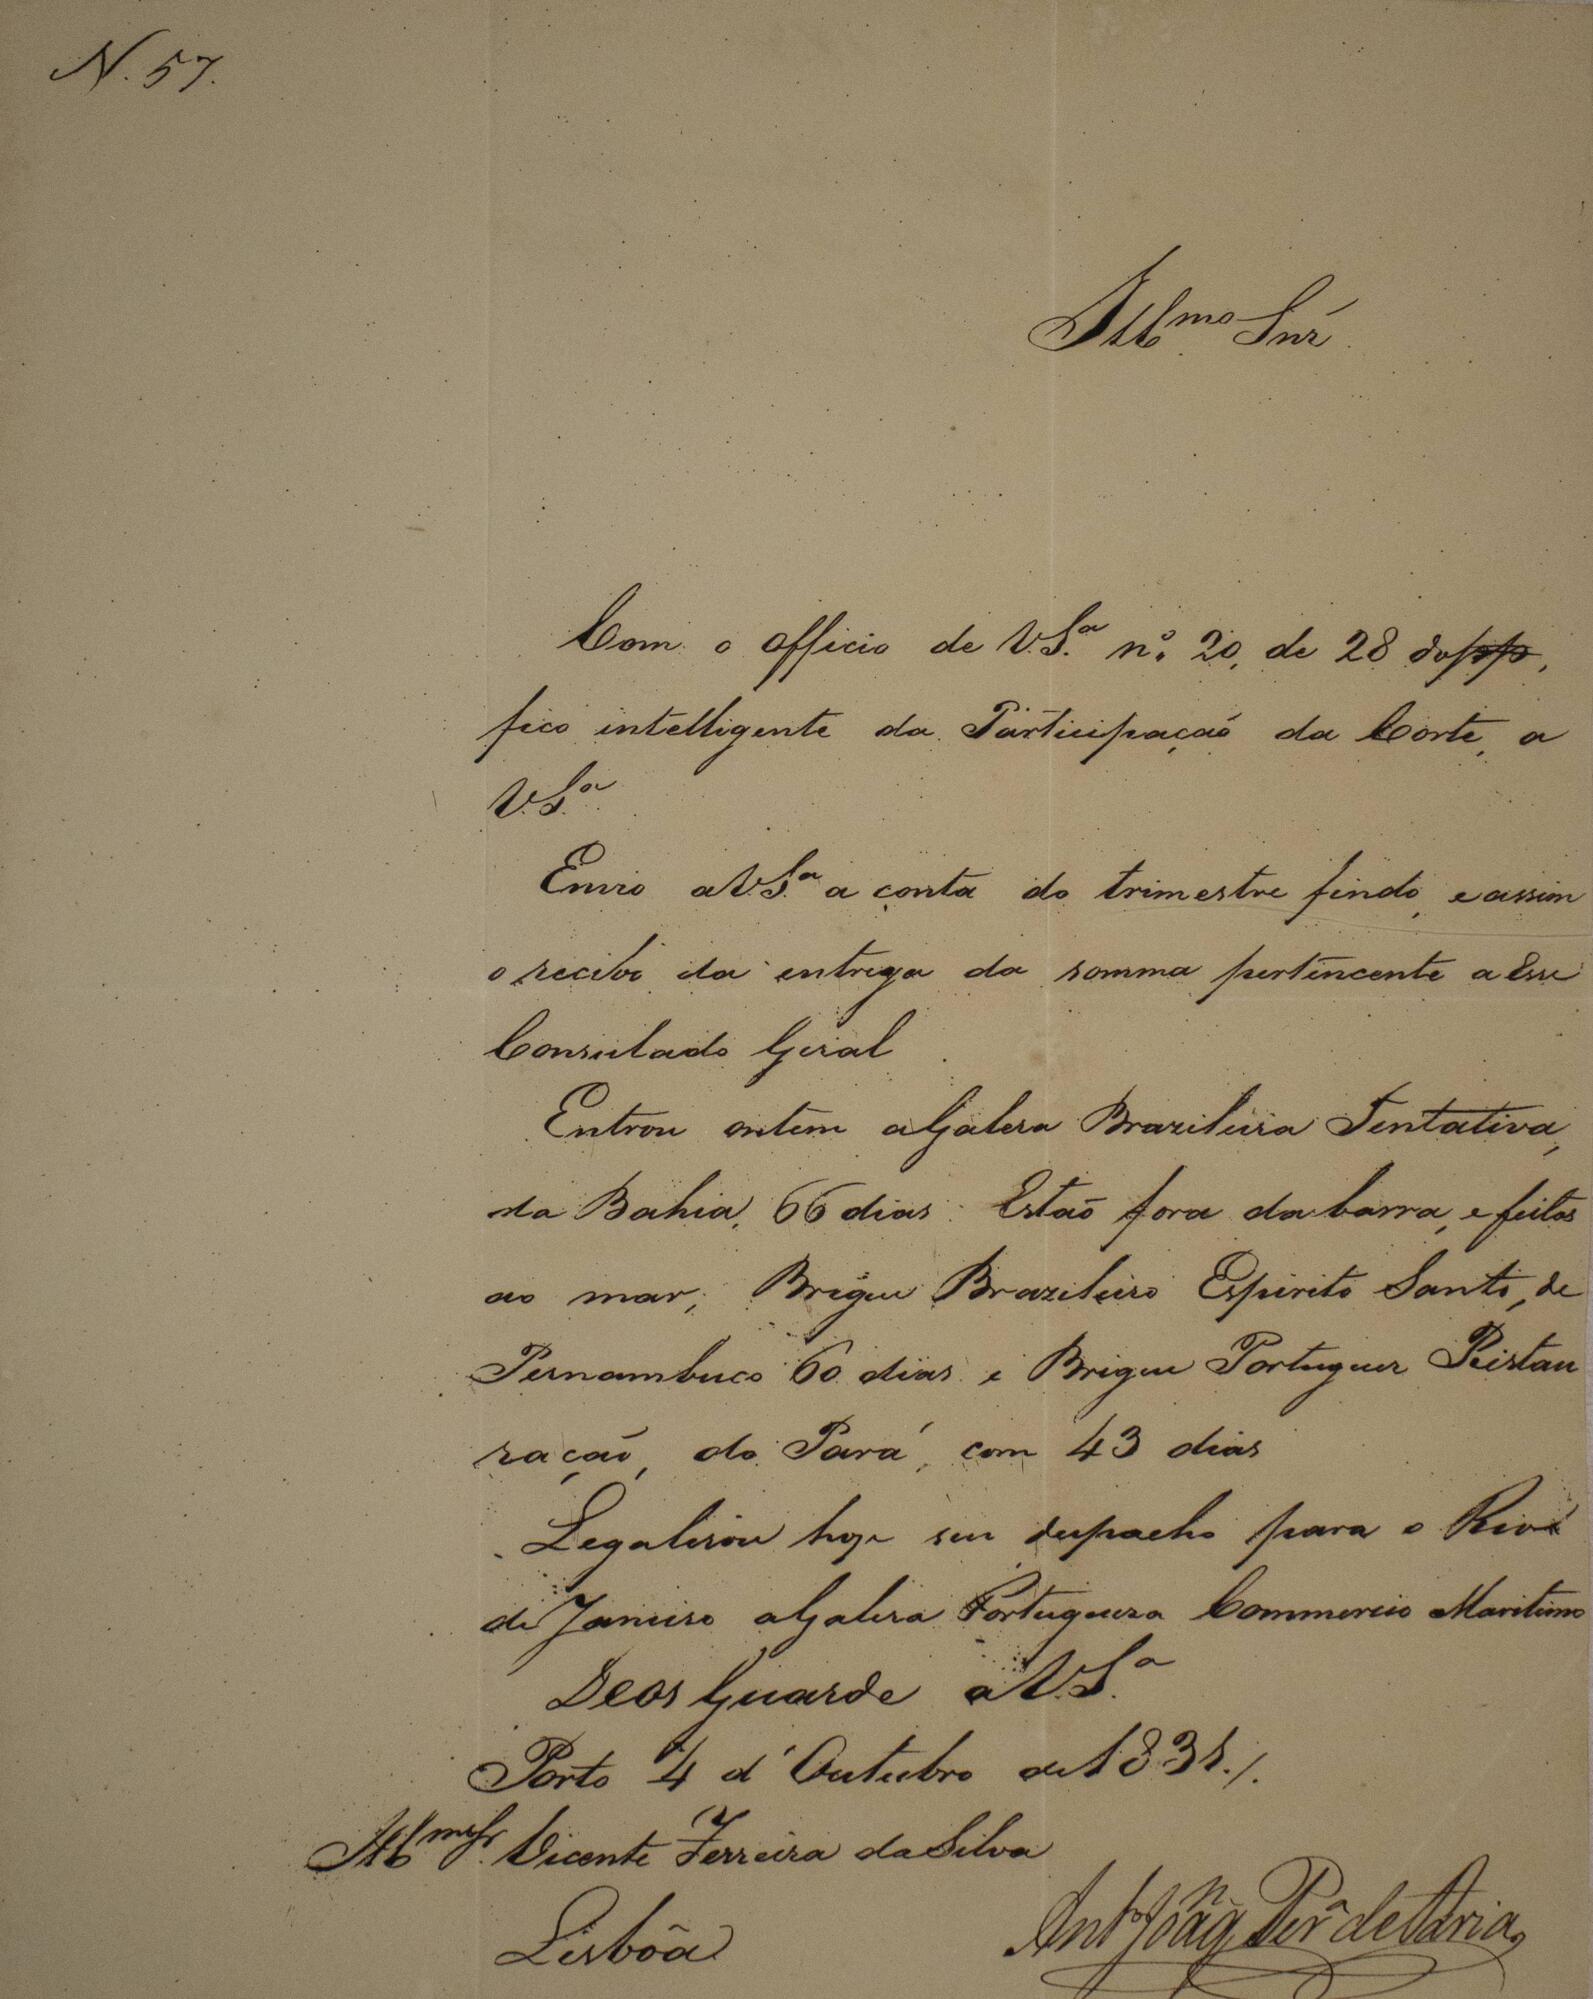 N. 57.
Ill.mo Snr
Com o officio de V.S.a n.o 20, de 28 do pp,
fico intelligente da Participaçaõ da Corte, a
V.S.a
Envio a V.S.a a conta do trimestre findo, e assim
o recibo da entrega da somma pertencente a esse
Consulado Geral
Entrou ontem a Galera Brazileira Tentativa,
da Bahia, 66 dias. Estaõ fora da barra, e feitos
ao mar; Brigue Brazileiro Espirito Santo, de
Pernambuco 60 dias e Brigue Portuguez Restau
raçaõ, do Pará, com 43 dias
Legalisou hoje seu despacho para o Rio
de Janeiro a Galera Portugueza Commercio Maritimo
Deos Guarde a V.S.a
Porto 4 d'Outubro de 1831./.
Ill.mo Sr. Vicente Ferreira da Silva
Lisbôa
Ant.o Joaq.m Per.a de Faria